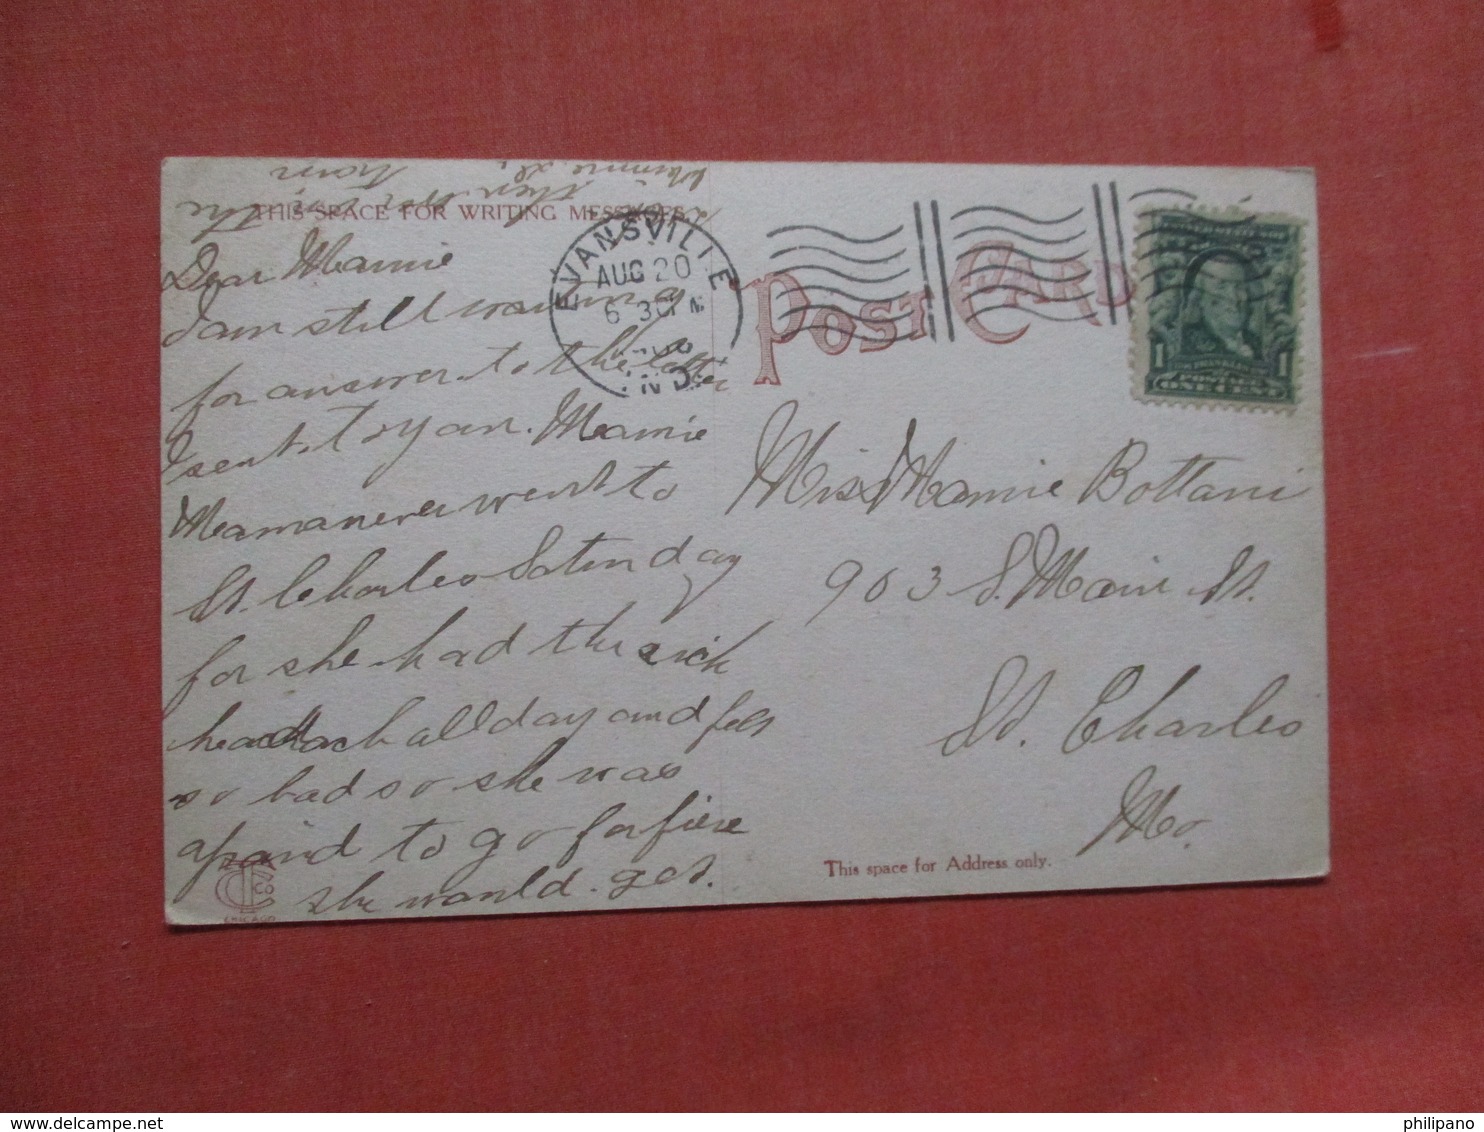 THIS SPACE FOR WRITING MESSAGES
Dear Mamie
I am still waiting
for answer to the letter
I sent to you. Mamie
Mama never went to
St. Charles Saturday
for she had the sick
headach all day and felt
so bad so she was
afraid to go for fiere
she would get.
worse on the
then
home
Mamie
EVANSVILLE
AUG 20
6 30 PM
IND.
POST CARD
1 1
ONE CENT
Miss Mamie Bottani
903 S. Main St.
St. Charles
Mo.
This space for Address only.
CHICAGO
philipano